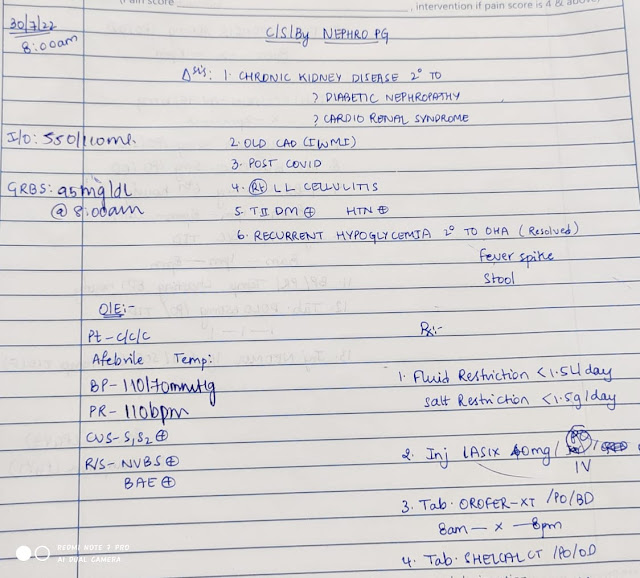 (Pain score , intervention if pain score is 4 & above)
30/7/22
8:00am
C/S/By NEPHRO PG
Δsis: 1. CHRONIC KIDNEY DISEASE 2° TO
? DIABETIC NEPHROPATHY
? CARDIO RENAL SYNDROME
I/O: 550/1100ml.
2. OLD CAD (IWMI)
3. POST COVID
GRBS: 95mg/dL
@ 8:00am
4. (Rt) LL CELLULITIS
5. TII DM ⊕ HTN ⊕
6. RECURRENT HYPOGLYCEMIA 2° TO OHA (Resolved)
fever spike
Stool
O/E:-
Pt - C/C/C
Afebrile Temp:
BP - 110/70mmHg
PR - 110bpm
CVS - S1,S2 ⊕
R/S - NVBS ⊕
BAE ⊕
Rx:-
1. Fluid Restriction <1.5L/day
Salt Restriction <1.5g/day
2. Inj LASIX 40mg/
IV
3. Tab. OROFER-XT /PO/BD
8am — x — 8pm
4. Tab. SHELCAL CT /PO/OD
REDMI NOTE 7 PRO
AI DUAL CAMERA